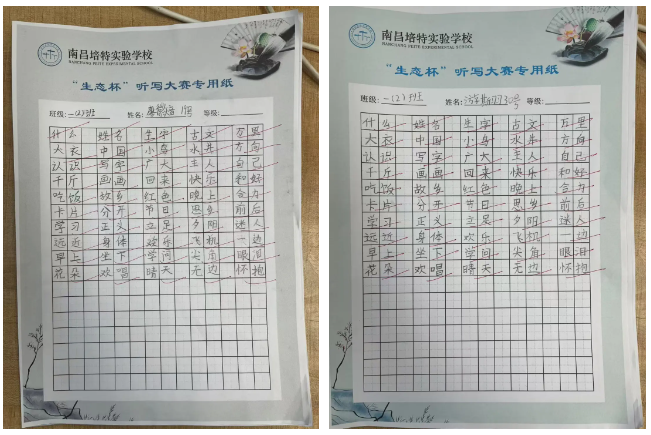 南昌培特实验学校
NANCHANG PEITE EXPERIMENTAL SCHOOL
“生态杯”听写大赛专用纸
班级: 一(2)班 姓名: 等级:
什么 姓名 生字 古文 万里
大衣 中国 小鸟 水井 方向
认识 写字 广大 主人 自己
千斤 画画 回来 快乐 和好
吃饭 故乡 红色 晚上 合办
卡片 分开 节日 思乡 前后
学习 正义 立足 夕阳 迷人
远近 身体 欢乐 飞机 一边
早上 坐下 学问 尖角 眼泪
花朵 欢唱 晴天 无边 怀抱
南昌培特实验学校
NANCHANG PEITE EXPERIMENTAL SCHOOL
“生态杯”听写大赛专用纸
班级: 一(2)班 姓名: 等级:
什么 姓名 生字 古文 万里
大衣 中国 小鸟 水井 方向
认识 写字 广大 主人 自己
千斤 画画 回来 快乐 和好
吃饭 故乡 红色 晚上 合办
卡片 分开 节日 思乡 前后
学习 正义 立足 夕阳 迷人
远近 身体 欢乐 飞机 一边
早上 坐下 学问 尖角 眼泪
花朵 欢唱 晴天 无边 怀抱